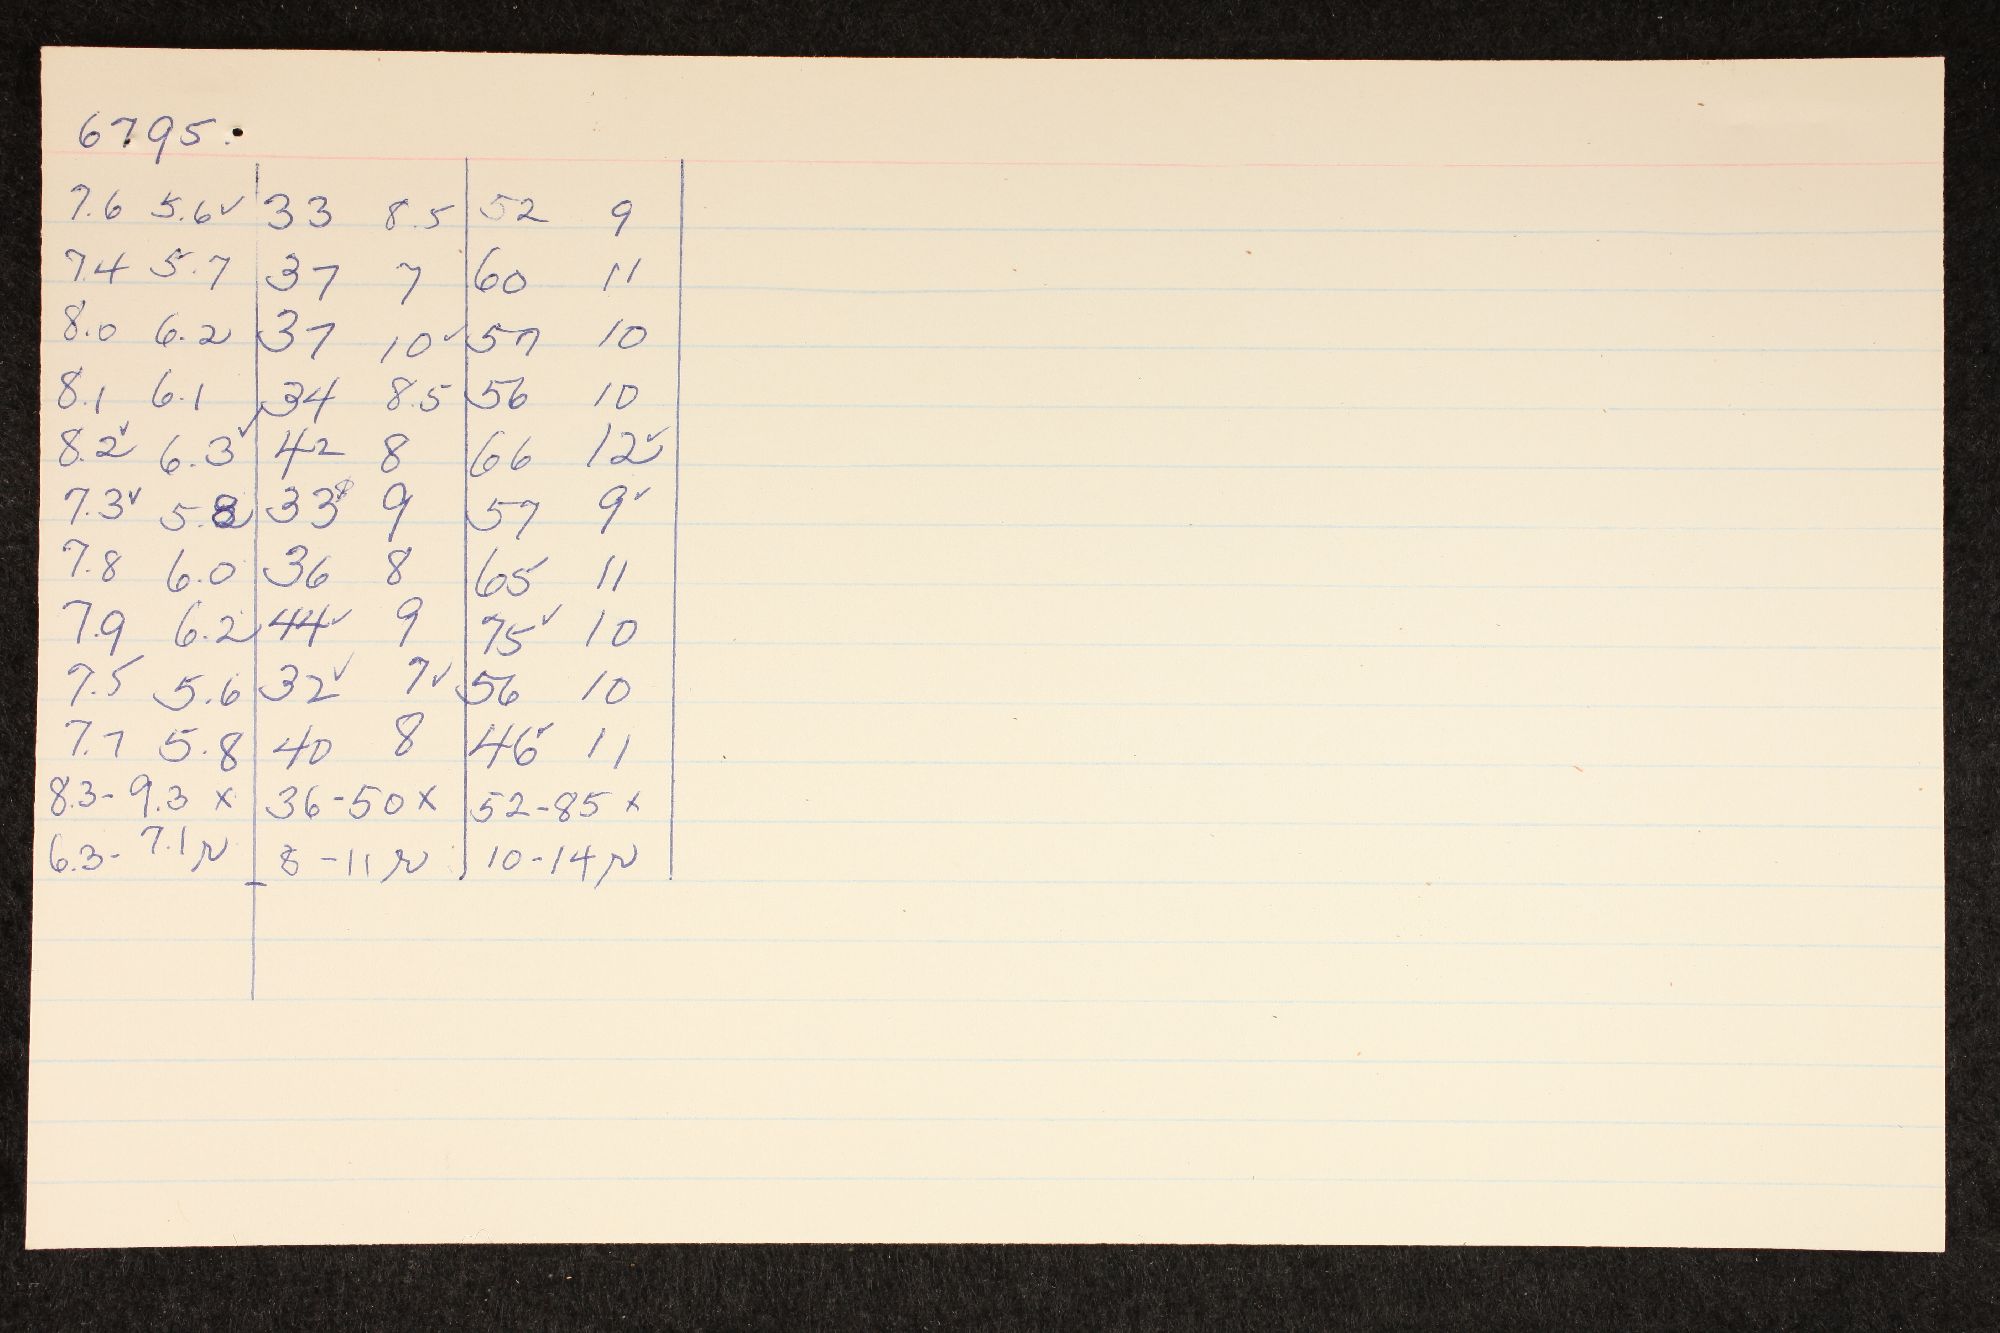 6795.
7.6 5.6✓ 33 8.5 52 9
7.4 5.7 37 7 60 11
8.0 6.2 37 10✓ 57 10
8.1 6.1 34 8.5 56 10
8.2✓ 6.3✓ 42 8 66 12✓
7.3✓ 5.8 33 9 57 9✓
7.8 6.0 36 8 65 11
7.9 6.2 44✓ 9 75✓ 10
7.5 5.6 32✓ 7✓ 56 10
7.7 5.8 40 8 46✓ 11
8.3-9.3 x 36-50 x 52-85 x
6.3-7.1 μ 8-11 μ 10-14 μ